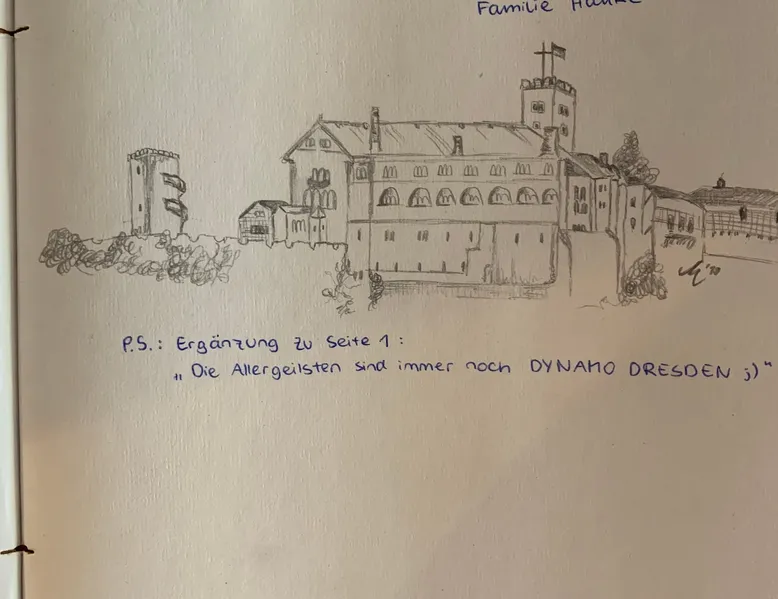 Familie
P.S.: Ergänzung zu Seite 1:
„Die Allergeilsten sind immer noch DYNAMO DRESDEN ;)"